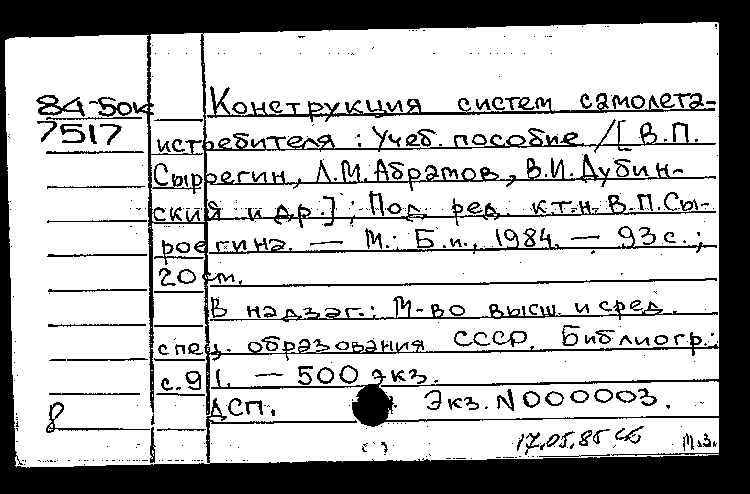 84-50к Конструкция систем самолета-
7517 истребителя : Учеб. пособие /[ В.П.
Сыроегин, Л.М. Абрамов, В.И. Дубин-
ский и др.] ; Под ред. к.т.н. В.П. Сы-
роегина. — М.: Б.и., 1984. — 93 с. ;
20 см.
В надзаг.: М-во высш. и сред.
спец. образования СССР. Библиогр.:
с. 91. — 500 экз.
ДСП. Экз. N 000003.
8
17.05.85 М.З.